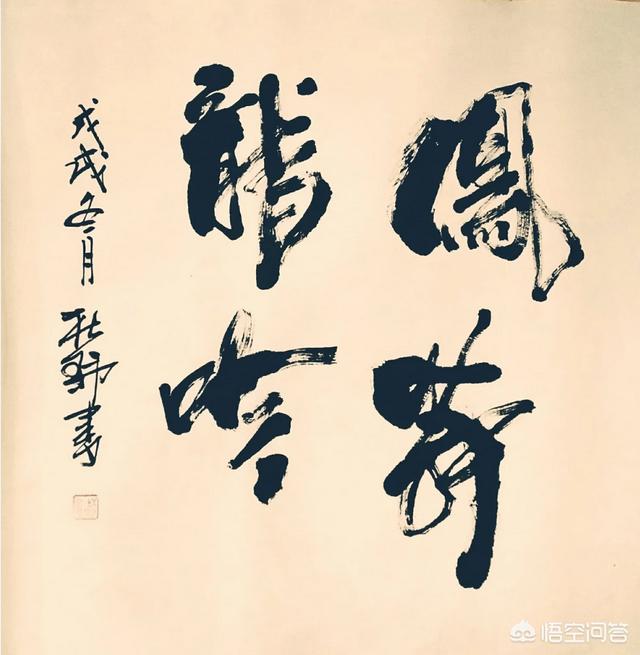 鳳舞
龍吟
戊戌冬月 書
悟空问答